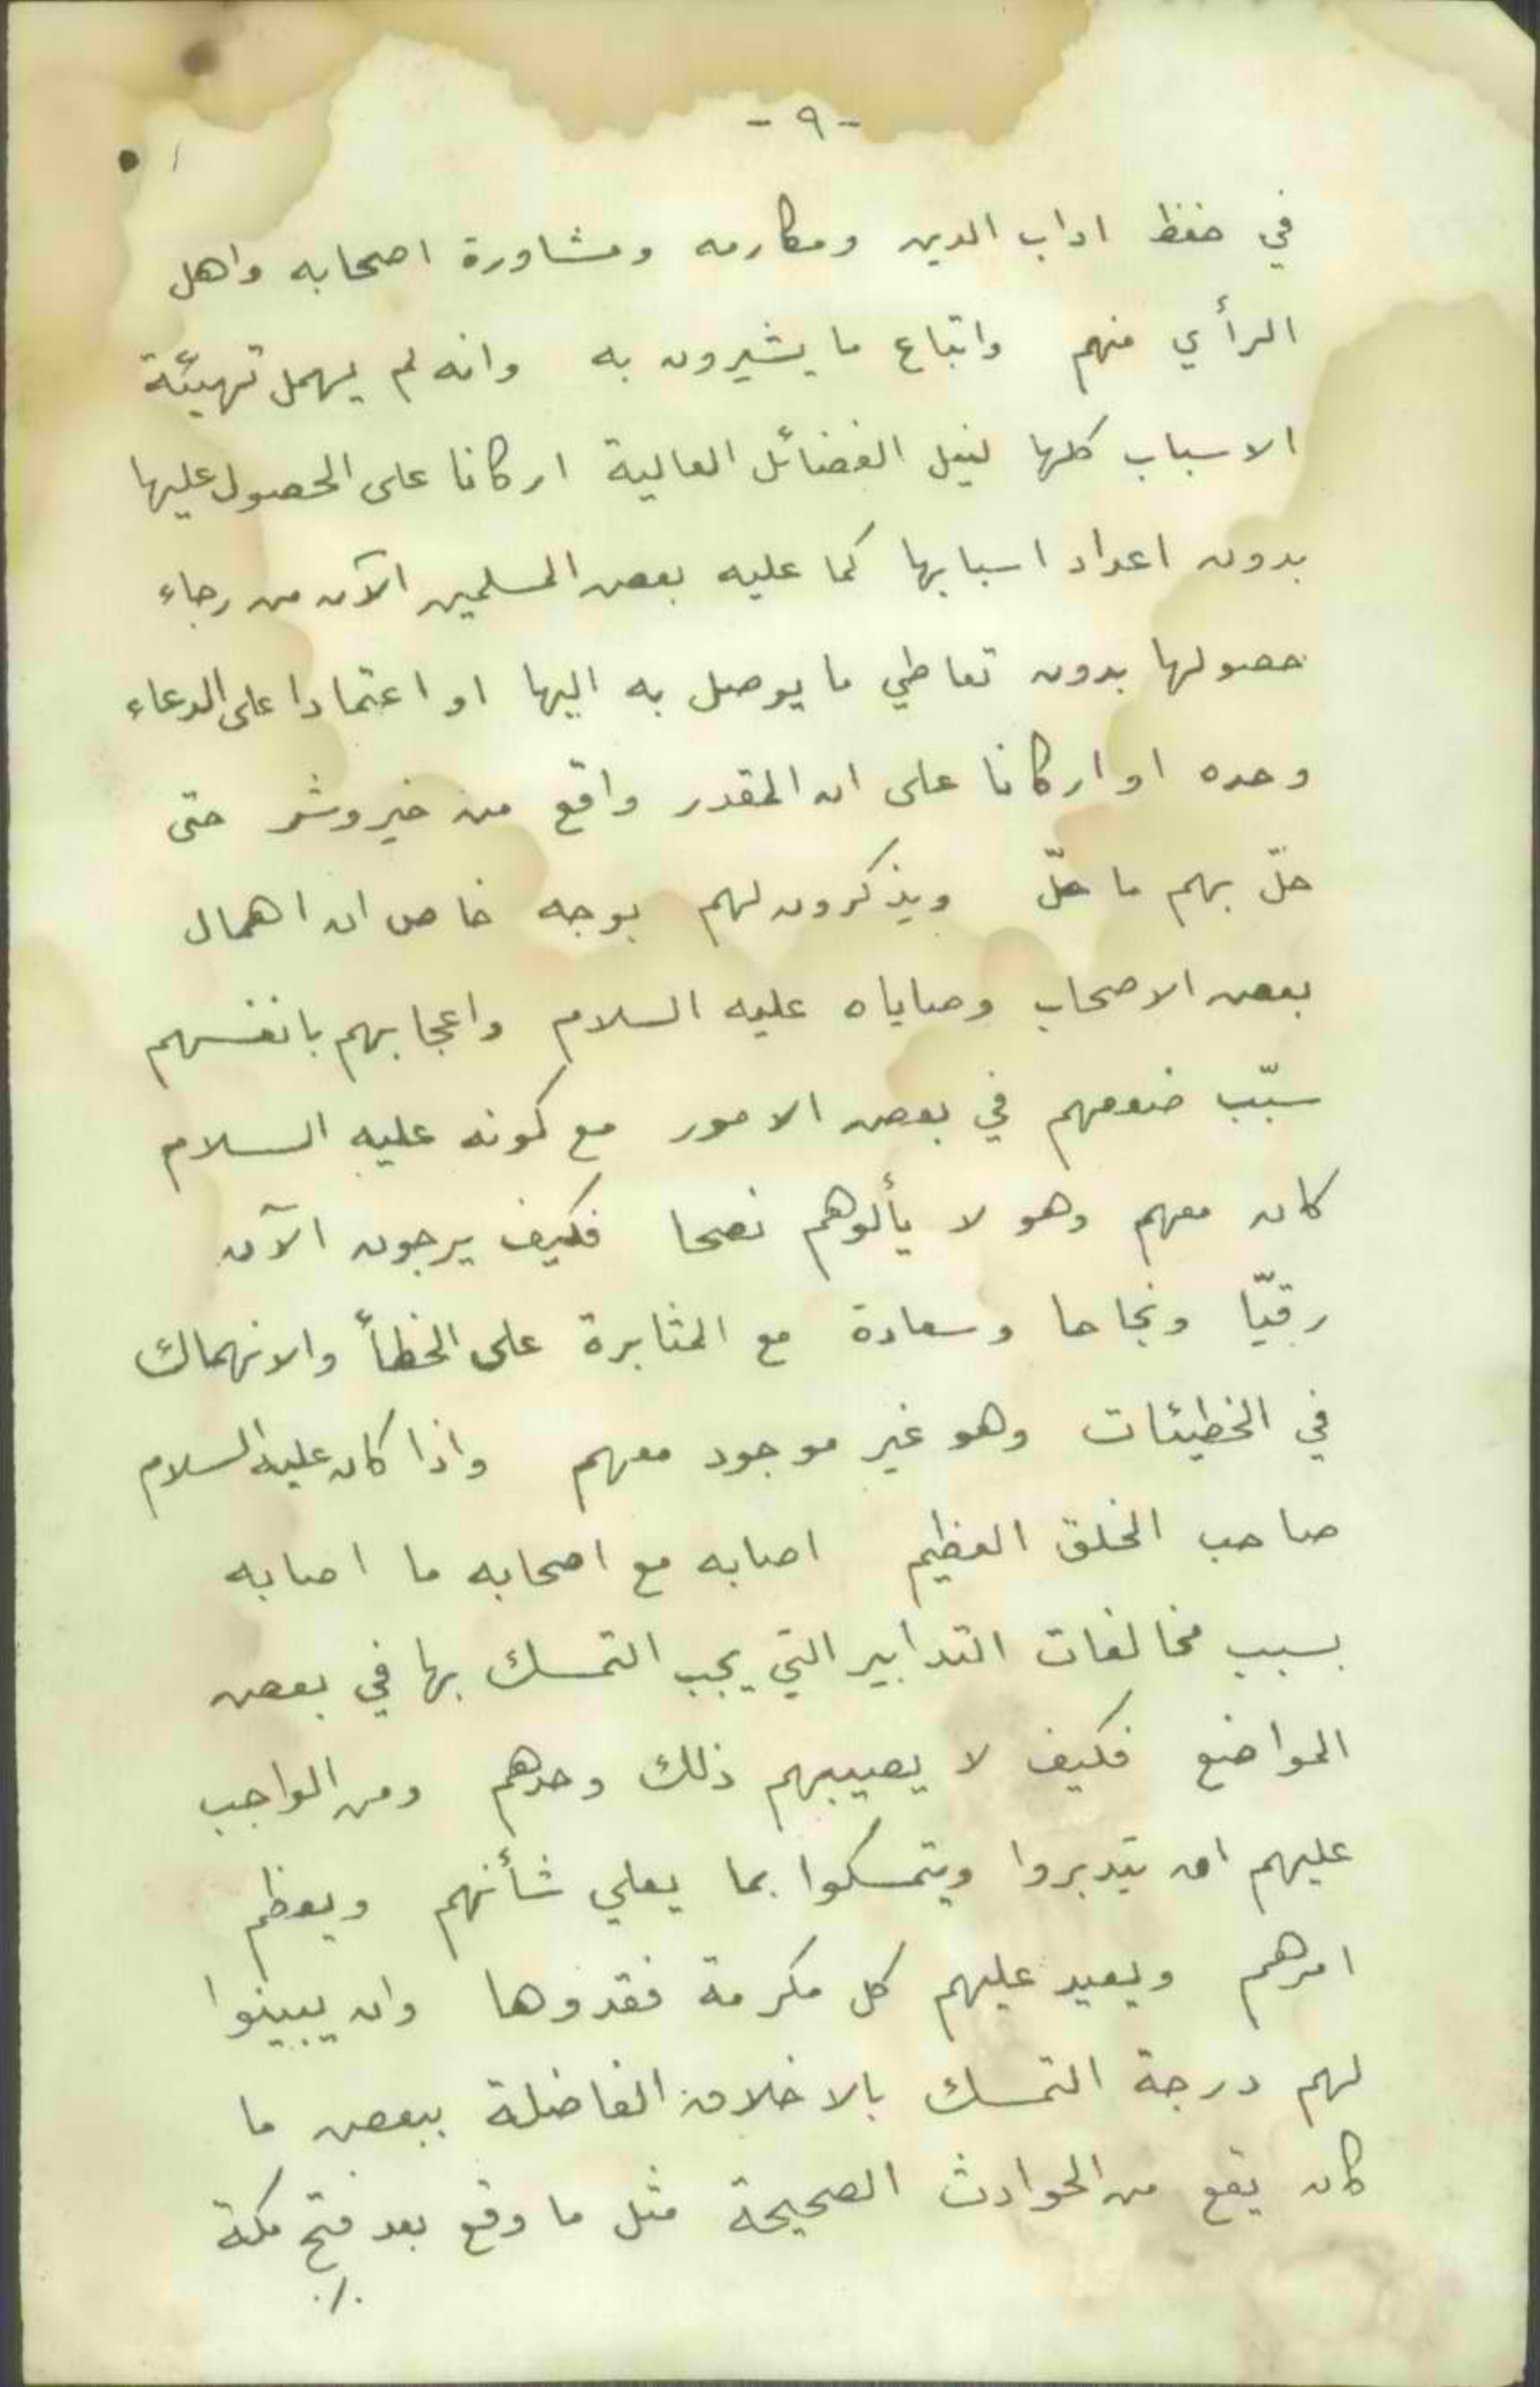 - ٩ -
في حفظ اداب الدين ومكارمه ومشاورة اصحابه واهل
الرأي منهم واتباع ما يشيرون به وانه لم يهمل تهيئة
الاسباب كلها لنيل الفضائل العالية اركانا على الحصول عليها
بدون اعداد اسبابها كما عليه بعض المسلمين الآن من رجاء
حصولها بدون تعاطي ما يوصل به اليها او اعتمادا على الدعاء
وحده او اركانا على ان المقدر واقع من خير وشر حتى
حلّ بهم ما حلّ ويذكرون لهم بوجه خاص ان اهمال
بعض الاصحاب وصاياه عليه السلام واعجابهم بانفسهم
سبّب ضعفهم في بعض الامور مع كونه عليه السلام
كان معهم وهو لا يألوهم نصحا فكيف يرجون الآن
رقيّا ونجاحا وسعادة مع المثابرة على الخطأ والانهماك
في الخطيئات وهو غير موجود معهم واذا كان عليه السلام
صاحب الخلق العظيم اصابه مع اصحابه ما اصابه
بسبب مخالفات التدابير التي يجب التمسك بها في بعض
المواضع فكيف لا يصيبهم ذلك وحدهم ومن الواجب
عليهم ان يتدبروا ويتمسكوا بما يعلي شأنهم ويعظم
امرهم ويعيد عليهم كل مكرمة فقدوها وان يبينوا
لهم درجة التمسك بالاخلاق الفاضلة ببعض ما
كان يقع من الحوادث الصحيحة مثل ما وقع بعد فتح مكة
./.